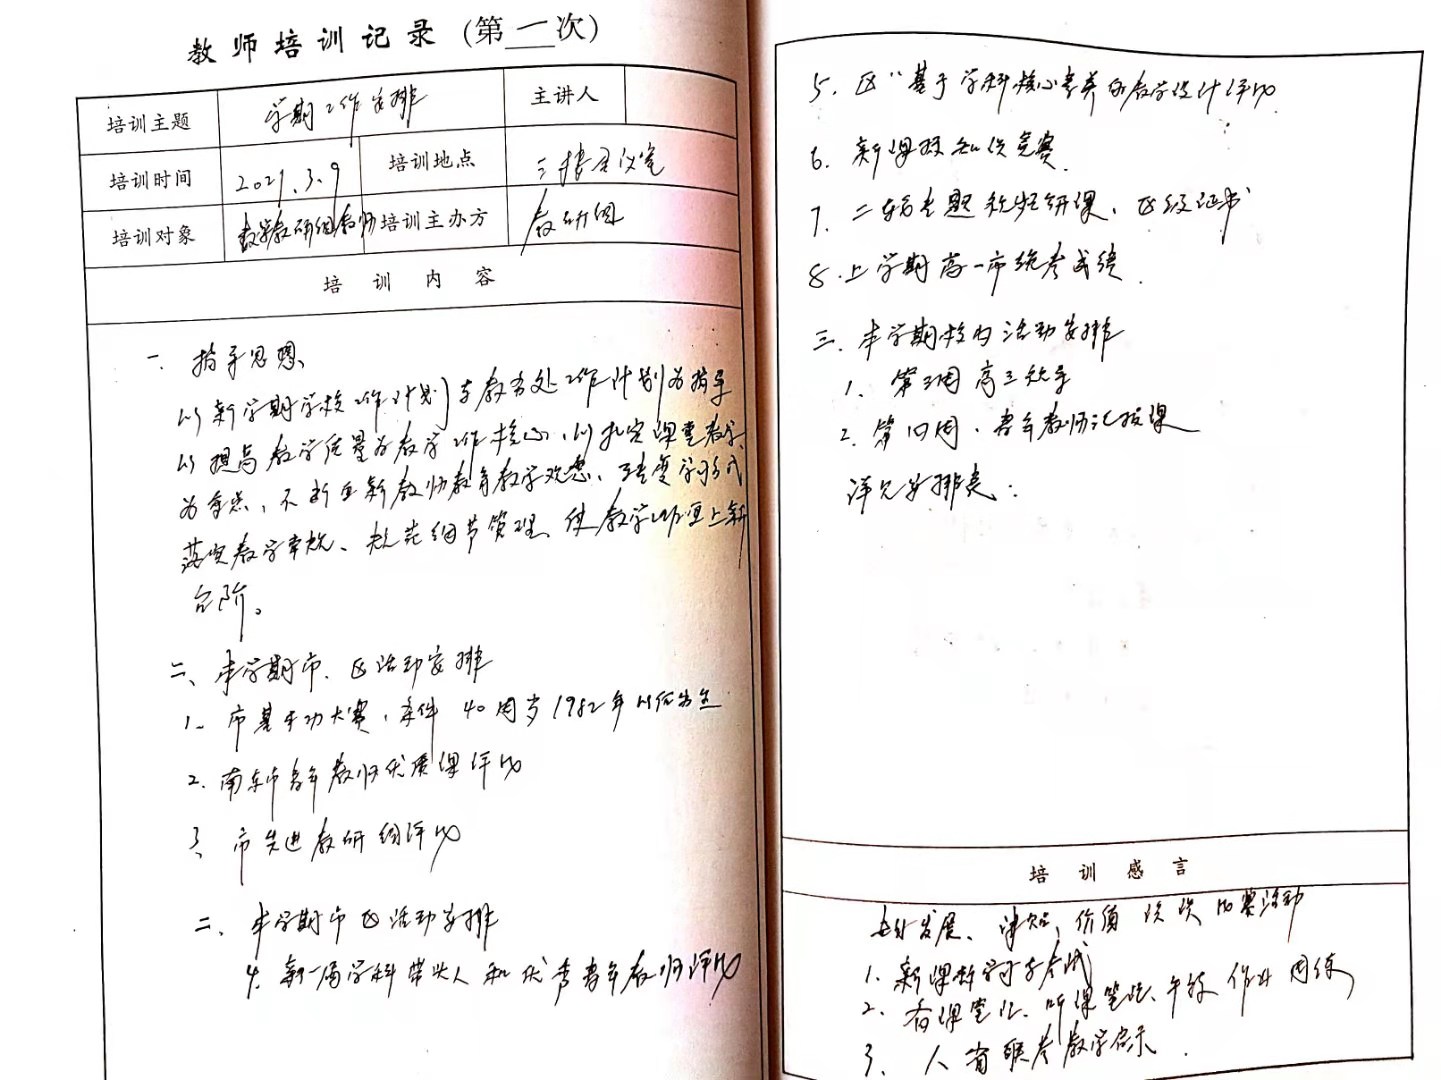 教师培训记录(第一次)
培训主题 学期工作安排 主讲人
培训时间 2021.3.9 培训地点 三楼会议室
培训对象 数学教研组教师 培训主办方 教研组
培训内容
一、指导思想
以新学期学校工作计划与教务处工作计划为指导
以提高教学质量为教学工作核心,以扎实课堂教学
为重点,不断更新教师教育教学观念、转变学习形式
落实教学常规、规范细节管理、使教学工作更上新
台阶。
二、本学期市、区活动安排
1、市基本功大赛,条件 40周岁1982年以后出生
2.南京市青年教师优质课评比
3、市先进教研组评比
二、本学期市区活动安排
4.新一届学科带头人和优秀青年教师评比
5.区“基于学科核心素养的教学设计评比
6.新课标知识竞赛
7.二轮专题 研课、区级证书
8.上学期高一市统考成绩.
三.本学期校内活动安排
1.第三周 高三
2.第四周.青年教师汇报课
详见安排表:
培训感言
发展、 价值 比赛活动
1.新课标学习与考试
2.看课笔记、听课笔记、 作业 周练
3. 教学启示.